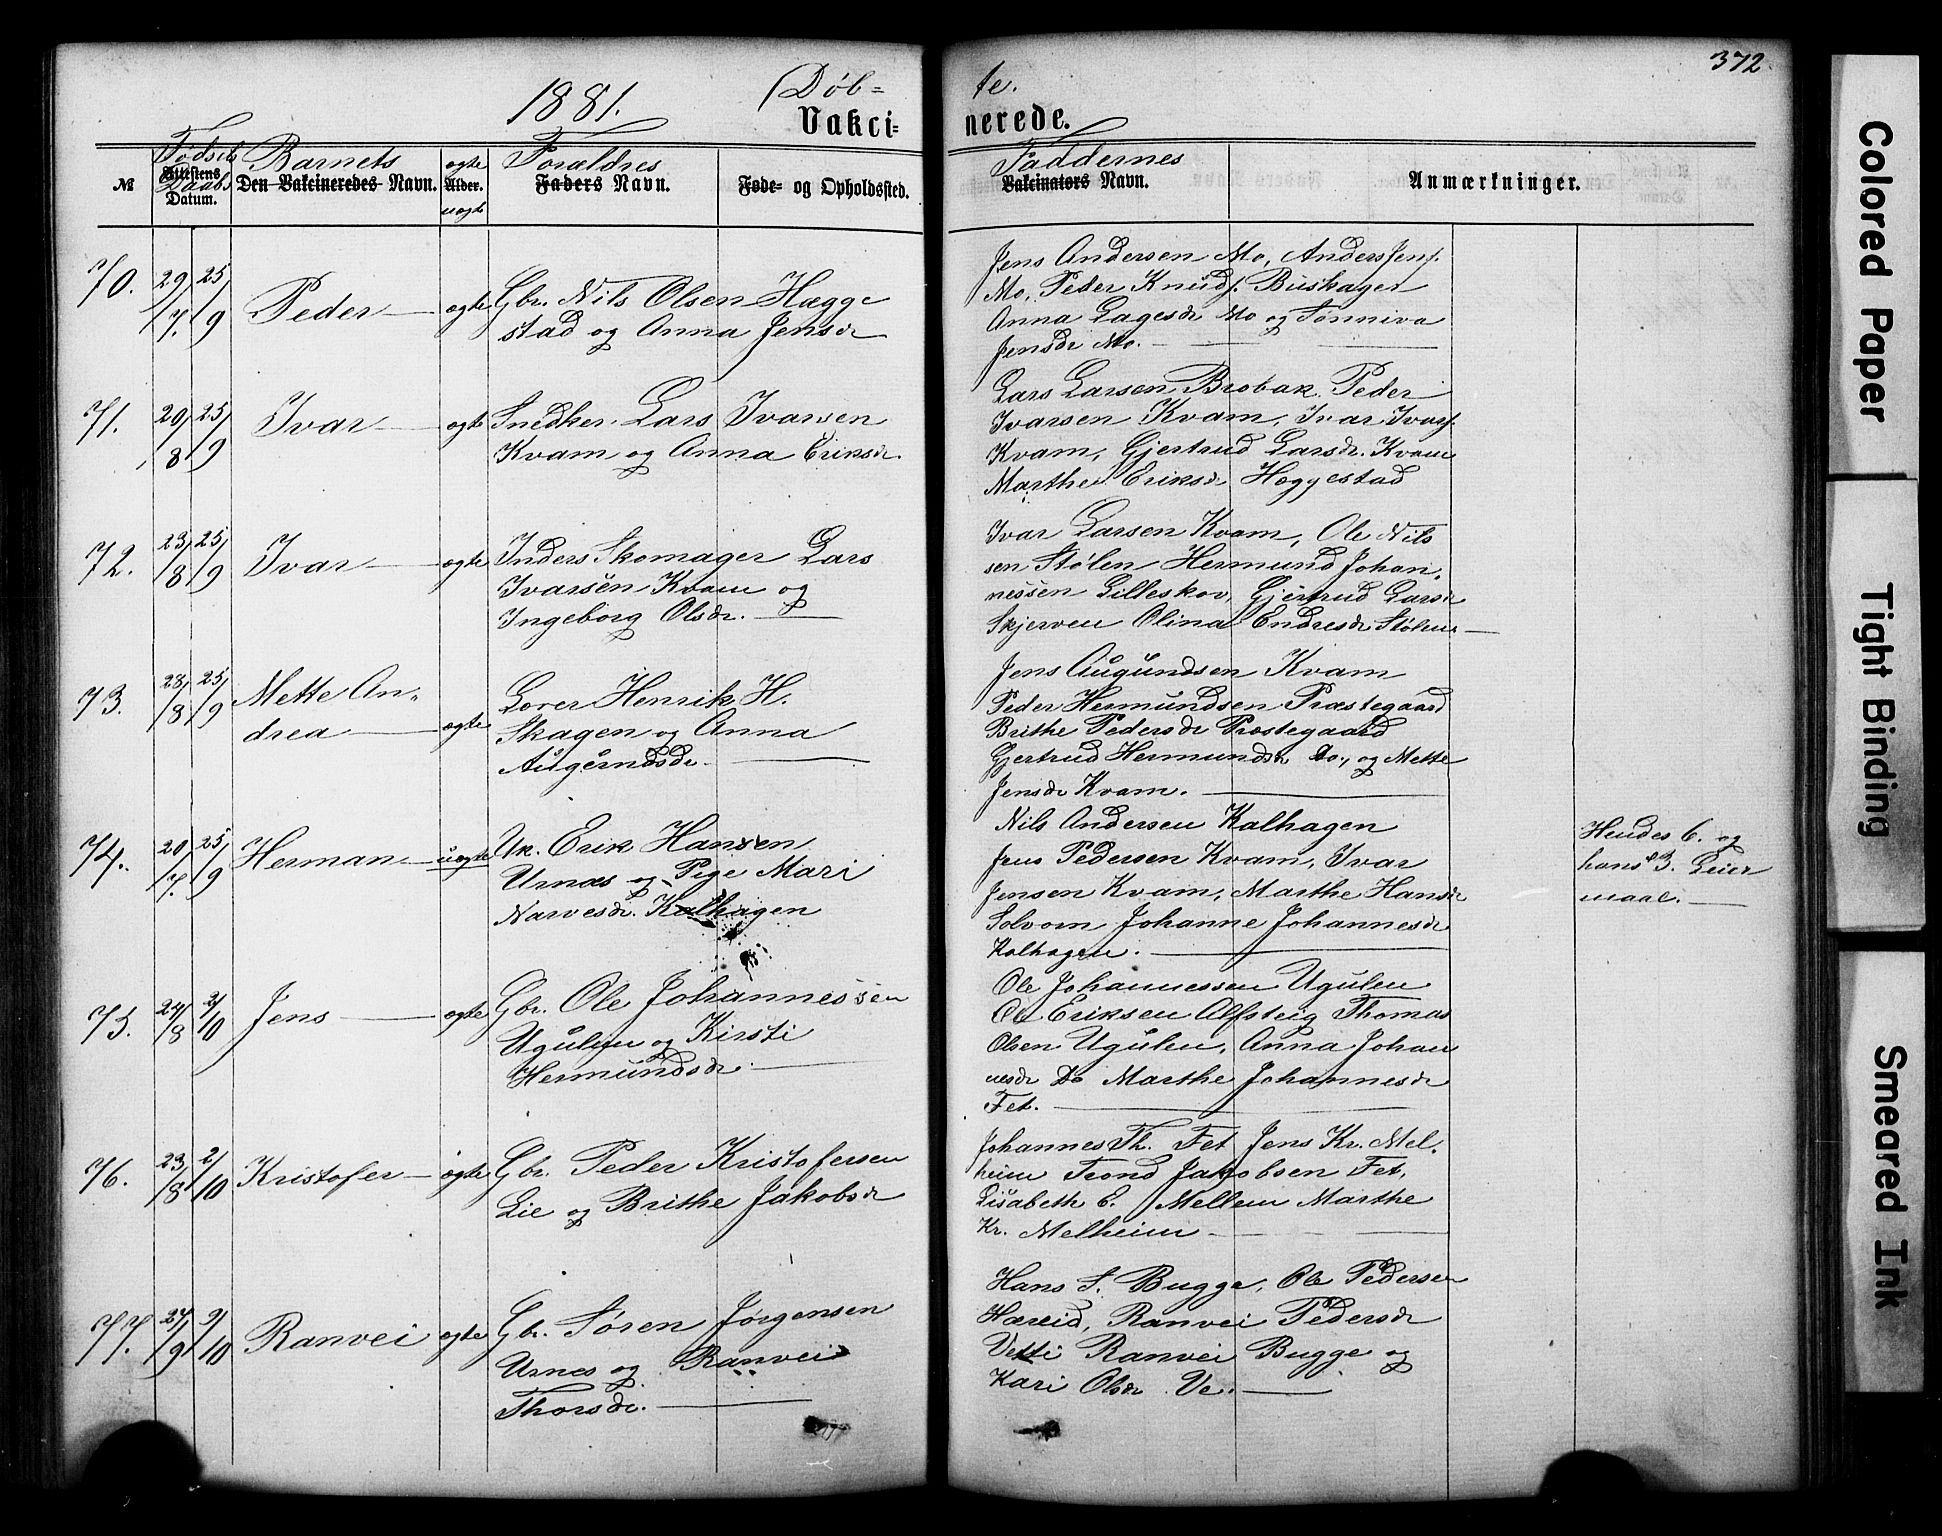 372.
1881. Døb= te.
Vakci= nerede.
Fødsels Barnets ægte Forældres Faddernes
№ Attestens Den Vakcineredes Navn. Alder. Faders Navn. Føde- og Opholdssted. Vakcinators Navn. Anmærkninger.
Daabs Datum. uægte
70. 29/7. 25/9 Peder ægte Gbr. Nils Olsen Hægge
stad og Anna Jensdr
Jens Andersen Mo, Anders Jens.
Mo, Peder Knuds. Buskager
Anna Lagesdr Mo og Sønniva
Jensdr Mo.
71. 20/8 25/9 Ivar ægte Snedker Lars Ivarsen
Kvam og Anna Eriksdr.
Lars Larsen Brobak Peder
Ivarsen Kvam, Ivar Ivars.
Kvam, Gjertrud Larsdr. Kvam
Marthe Eriksdr Hæggestad
72. 23/8 25/9 Ivar ægte Inders Skomager Lars
Ivarsen Kvam og
Ingeborg Olsdr.
Ivar Larsen Kvam, Ole Nils
sen Stølen Hermund Johan-
nessen Lilleskov, Gjertrud Larsdr
Skjerven Olina Endresdr Stølen
73. 28/8 25/9 Mette An-
drea ægte Lorer Henrik H.
Skagen og Anna
Augundsdr.
Jens Augundsen Kvam
Peder Hermundsen Præstegaard
Brithe Pedersdr Præstegaard
Gjertrud Hermundsdr Do., og Mette
Jensdr Kvam.
74. 20/7. 25/9 Herman uægte Uk. Erik Hansen
Urnæs og Pige Mari
Narvesdr. Kalhagen
Nils Andersen Kalhagen
Jens Pedersen Kvam, Ivar
Jensen Kvam, Marthe Hansdr
Solvorn Johanne Johannesdr
Kalhagen.
Hendes 6. og
hans 3. Leier
maal.
75. 24/8 2/10 Jens ægte Gbr. Ole Johannessen
Ugulen og Kirsti
Hermundsdr.
Ole Johannessen Ugulen
Ole Eriksen Alfsteig Thomas
Olsen Ugulen, Anna Johan
nesdr Do Marthe Johannesdr
Fet.
76. 23/8 2/10 Kristofer ægte Gbr. Peder Kristofersen
Lie og Brithe Jakobsdr
Johannes Th. Fet Jens Kr. Mel-
heim Trond Jakobsen Fet,
Lisabeth E. Mellem Marthe
Kr. Melheim
77. 27/9 2/10 Ranvei ægte Gbr. Søren Jørgensen
Urnes og Ranvei
Thorsdr.
Hans S. Bugge, Ole Pedersen
Hæreid, Ranvei Pedersdr
Vetti Ranvei Bugge og
Kari Olsdr Ve.
Colored Paper
Tight Binding
Smeared Ink